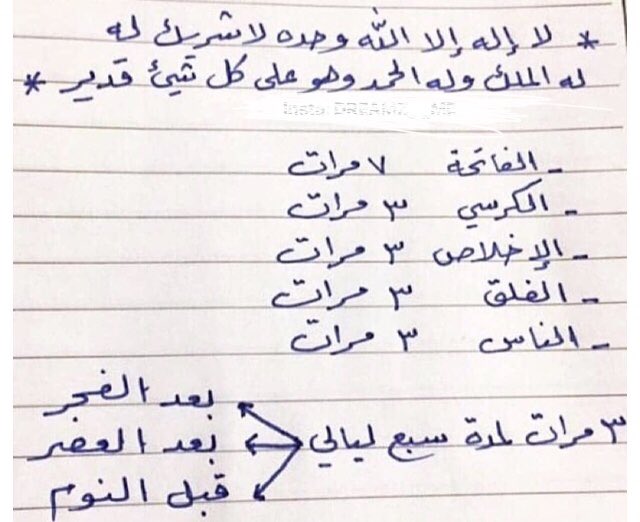 * لا إله إلا الله وحده لا شريك له
له الملك وله الحمد وهو على كل شيئ قدير *
Insta: DREAMZ ME
- الفاتحة ٧ مرات
- الكرسي ٣ مرات
- الإخلاص ٣ مرات
- الفلق ٣ مرات
- الناس ٣ مرات
٣ مرات لمدة سبع ليالي
بعد الفجر
بعد العصر
قبل النوم